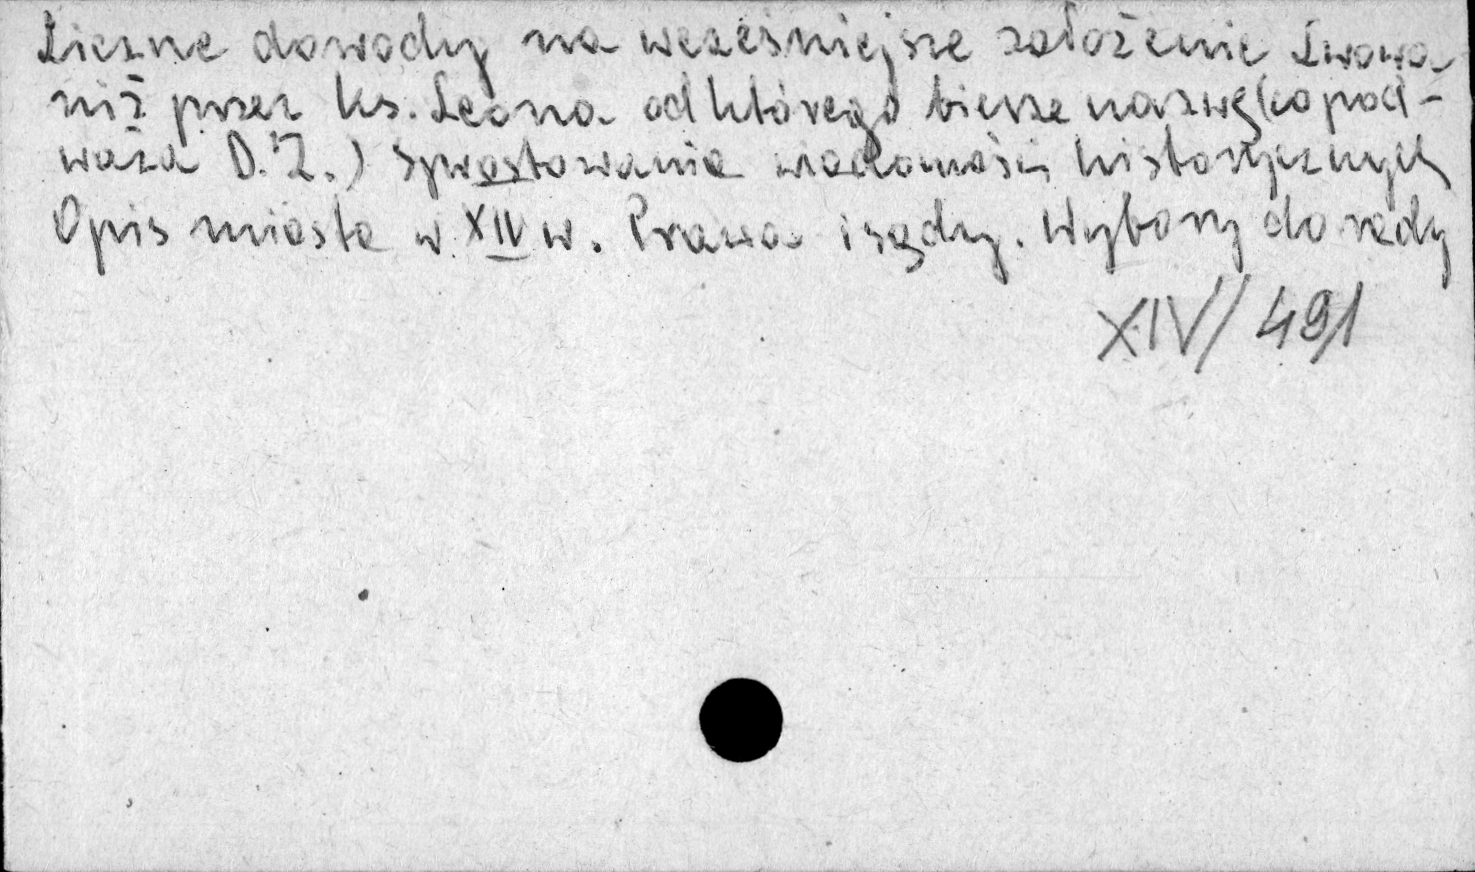 Liczne dowody na wcześniejsze założenie Lwowa
niż przez ks. Leona od którego bierze nazwę (co pod-
waża D. Z.) Sprostowanie wiadomości historycznych
Opis miasta w XIV w. Prawa i sądy. Wybory do rady
XIV/491